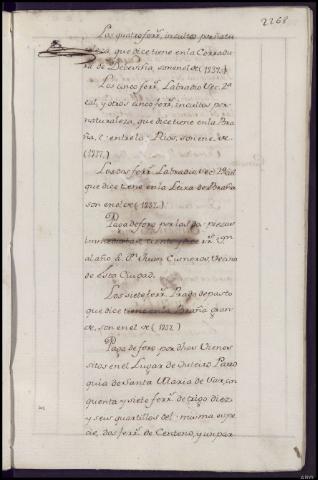 2268
Los quatro ferr.s incultos por natu
raleza, que dice tiene en la Corradu
ra de Deveviña, son en el de (1237.)
Los cinco ferr.s Labradio Sec.no 2.a
cal, y otros cinco ferr.s incultos por
naturaleza, que dice tiene en la Bra
ña, è entre lo, Rios, son en el de
(1237.)
Los dos ferr.s Labradio Sec.no
que dice tiene en la Leira de Braña
son en el de (1237.)
Paga de foro por las dos piezas
immediatas, ciento y doce r.s
al año, à D.n Juan Cisneros Vecino
de esta Ciudad.
Los siete ferr.s Prado de pasto
que dice tiene en la Braña gran
de, son en el de (1237.)
Paga de foro por dhos Vienes
sitos en el Lugar de Outeiro Parro
quia de Santa Maria de Sar, cin
quenta y siete ferr.s de trigo diez
y seis quartillos del misma espe
cie, dos ferr.s de Centeno, y un par